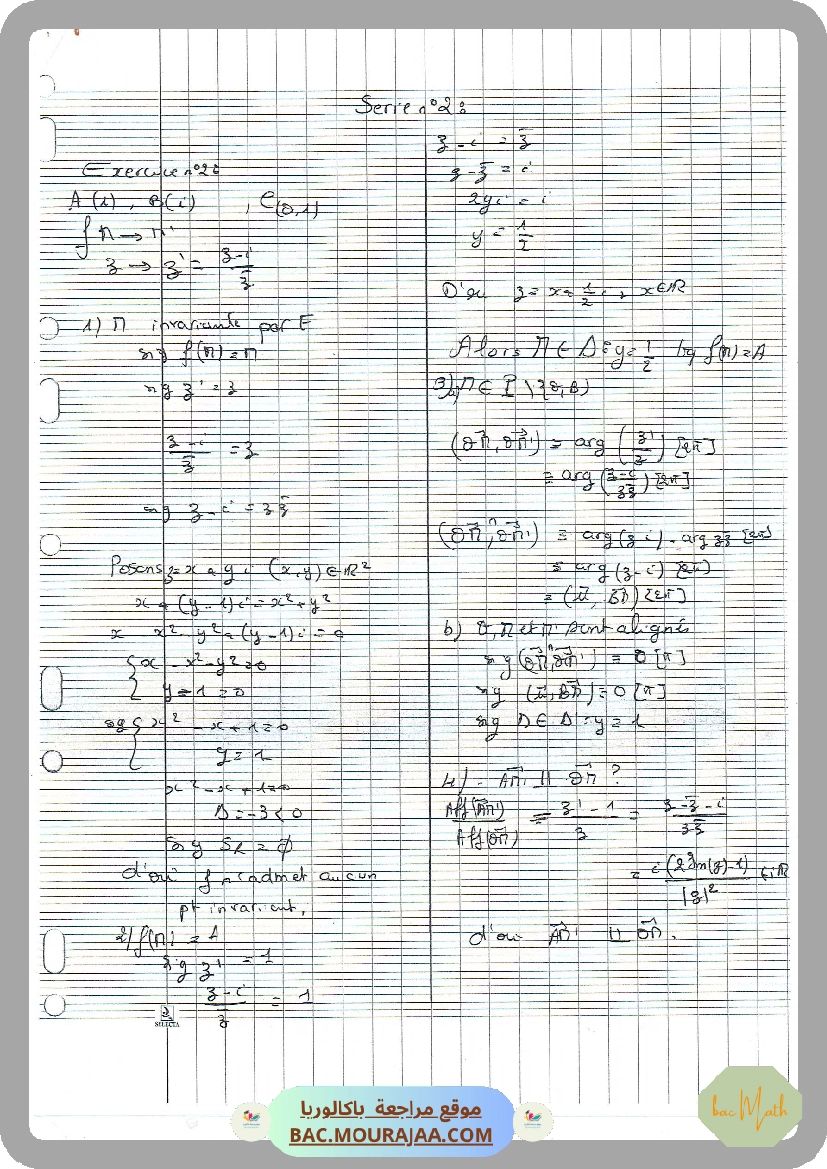 Serie n°2:
Exercice n°2:
A(1), B(i), C(0,1)
f M → M'
z → z' = (z-i)/z̄
1) M invariante par f
sig f(M) = M
sig z' = z
(z-i)/z̄ = z
sig z-i = z z̄
Posons z = x + yi (x,y) ∈ ℝ²
x + (y-1)i = x² + y²
x - x² - y² + (y-1)i = 0
{ x - x² - y² = 0
y - 1 = 0
sig { x² - x + 1 = 0
y = 1
x² - x + 1 = 0
Δ = -3 < 0
sig Sℝ = ∅
d'où f n'admet aucun
pt invariant.
2) f(M) = A
sig z' = 1
(z-i)/z̄ = 1
z - i = z̄
z - z̄ = i
2yi = i
y = 1/2
D'où z = x + 1/2 i, x ∈ ℝ
Alors M ∈ Δ: y = 1/2 tq f(M) = A
3) a) M ∈ P \ {O, B}
(OM→, OM'→) ≡ arg (z'/z) [2π]
≡ arg ((z-i)/(z z̄)) [2π]
(OM→, OM'→) ≡ arg(z-i) - arg z z̄ [2π]
≡ arg (z-i) [2π]
≡ (u→, BM→) [2π]
b) O, M et M' sont alignés
sig (OM→, OM'→) ≡ 0 [π]
sig (u→, BM→) ≡ 0 [π]
sig M ∈ Δ: y = 1
4) - AM'→ ⊥ OM→ ?
Aff(AM'→)/Aff(OM→) = (z' - 1)/z = (z - z̄ - i)/(z z̄)
= i(2Im(z) - 1)/|z|² ∈ iℝ
d'où AM'→ ⊥ OM→.
SELECTA
موقع مراجعة باكالوريا
BAC.MOURAJAA.COM
bac Math